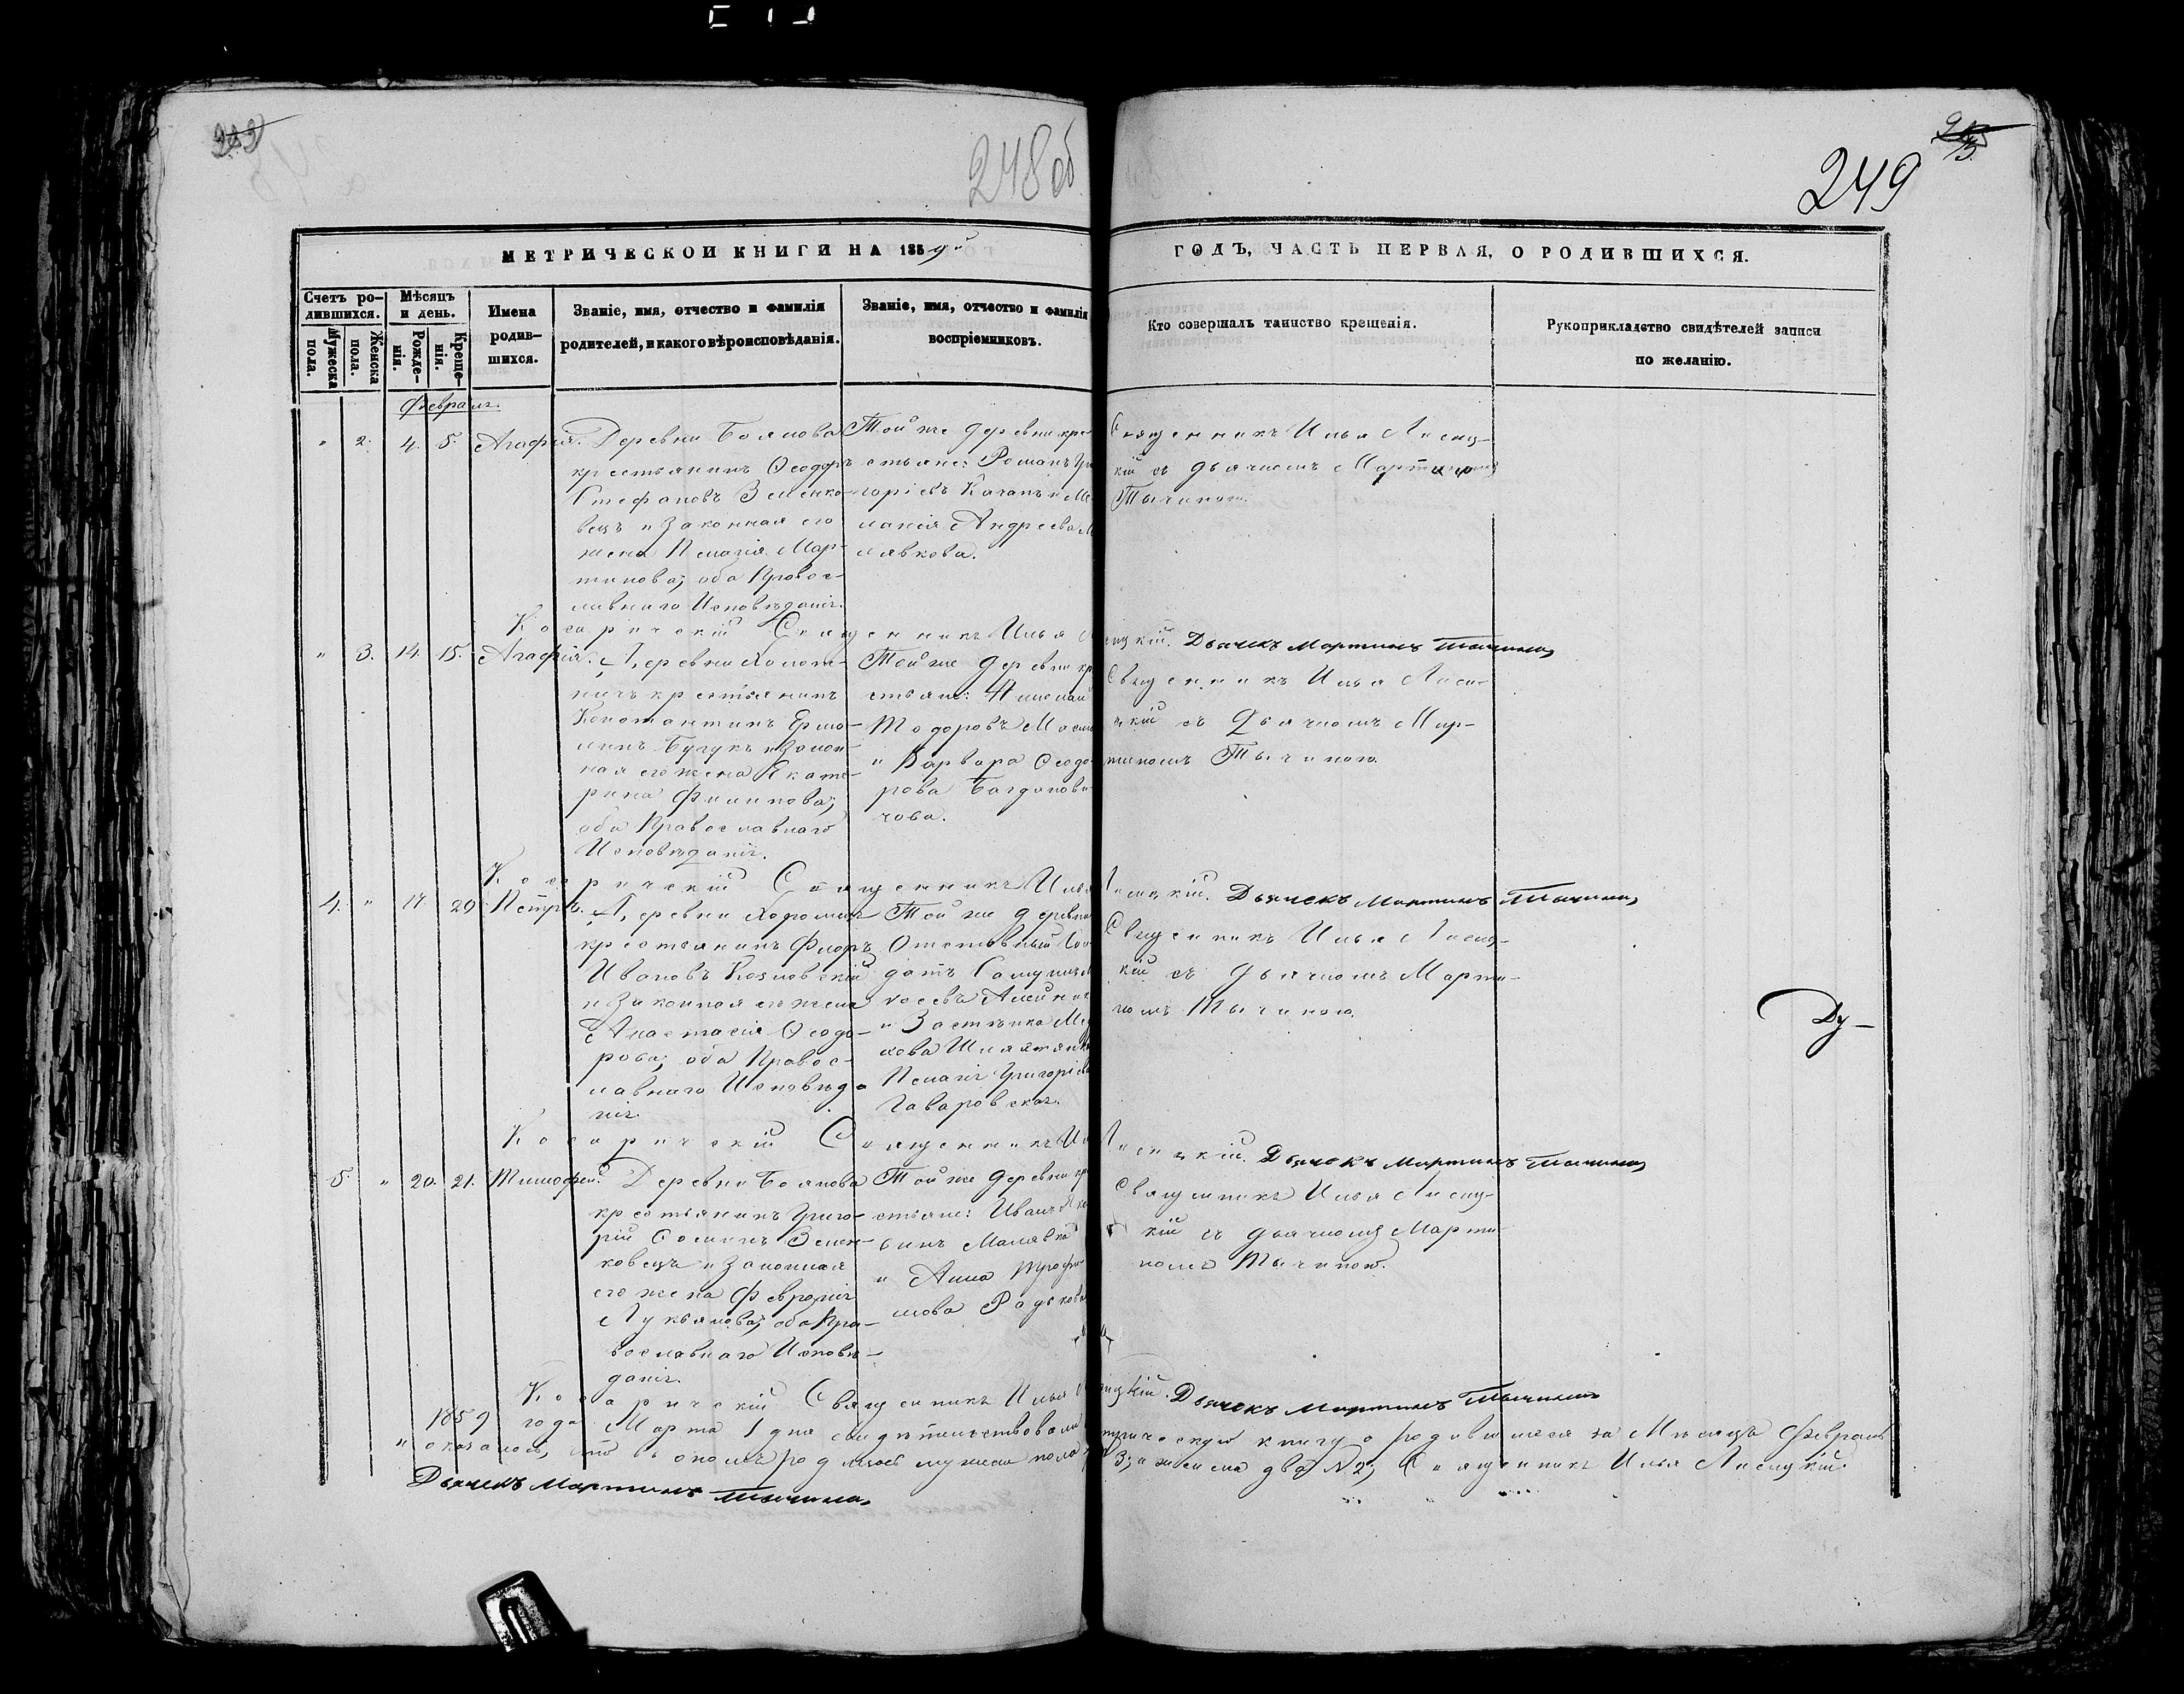 248 об
249
МЕТРИЧЕСКОЙ КНИГИ НА 1859й
ГОДЪ, ЧАСТЬ ПЕРВАЯ, О РОДИВШИХСЯ.
Счетъ ро-
дившихся.
Мужеска
пола.
Женска
пола.
Мѣсяцъ
и день.
Рожде-
нія.
Креще-
нія.
Имена
родив-
шихся.
Званіе, имя, отчество и фамилія
родителей, и какого вѣроисповѣданія.
Званіе, имя, отчество и фамилія
воспріемниковъ.
Кто совершалъ таинство крещенія.
Рукоприкладство свидѣтелей записи
по желанію.
Февраль.
" 2. 4. 5. Агафія.
Деревни Боянова
крестьянинъ Ѳеодоръ
Стефановъ Зеленко-
вецъ и законная его
жена Пелагія Мар-
тинова, оба Правос-
лавнаго Исповѣданія.
Той же деревни кре
стьяне: Романъ Гри
горіевъ Качанъ и Ме
ланія Андреева М
лявкова.
Священникъ Илья Лисиц-
кій съ дьячкомъ Мартиномъ
Тычиною.
Косаричскій Священникъ Илья Лисицкій. Дьячекъ Мартинъ Тычина
" 3. 14. 15. Агафія.
Деревни Холоп-
ничъ крестьянинъ
Константинъ Ермо-
линъ и закон-
ная его жена Екате-
рина Филипова,
оба Православнаго
Исповѣданія.
Той же деревни кр
стьяне: Николай
Тодоровъ
и Варвара Ѳеодо
рова Багданови-
чова.
Священникъ Илья Лисиц-
кій съ Дьячкомъ Мар-
тиномъ Тычиною.
Косаричскій Священникъ Илья Лисицкій. Дьячекъ Мартинъ Тычина
4. " 17 20 Петръ.
Деревни
крестьянинъ Флоръ
Ивановъ Козловскій
и законная его жена
Анастасія Ѳеодо-
рова, оба Правос-
лавнаго Исповѣда
нія.
Той же деревни
Отставный Сол
датъ
и Застѣнка
Шляхтянка
Пелагія Григоріева
Гаваровская.
Священникъ Илья Лисиц-
кій съ дьячкомъ Марти-
номъ Тычиною.
Ду-
Косаричскій Священникъ Илья Лисицкій. Дьячекъ Мартинъ Тычина
5. " 20. 21. Тимофей.
Деревни Боянова
крестьянинъ Григо-
рій Зелен-
ковецъ и законная
его жена Февронія
Лукьянова, оба Пра-
вославнаго Исповѣ-
данія.
Той же деревни кр
стьяне: Иванъ
Малявка
и Анна Трофи-
мова Радькова
Священникъ Илья Лисиц-
кій съ дьячкомъ Марти
номъ Тычиною.
Косаричскій Священникъ Илья Лисицкій. Дьячекъ Мартинъ Тычина
1859 года Марта 1 дня свидѣтельствовали метрическую книгу о родившихся за Мѣсяцъ Февраль
и оказалось, что въ ономъ родилось мужеска пола 3, а женска два № 2, Священникъ Илья Лисицкій.
Дьячекъ Мартинъ Тычина